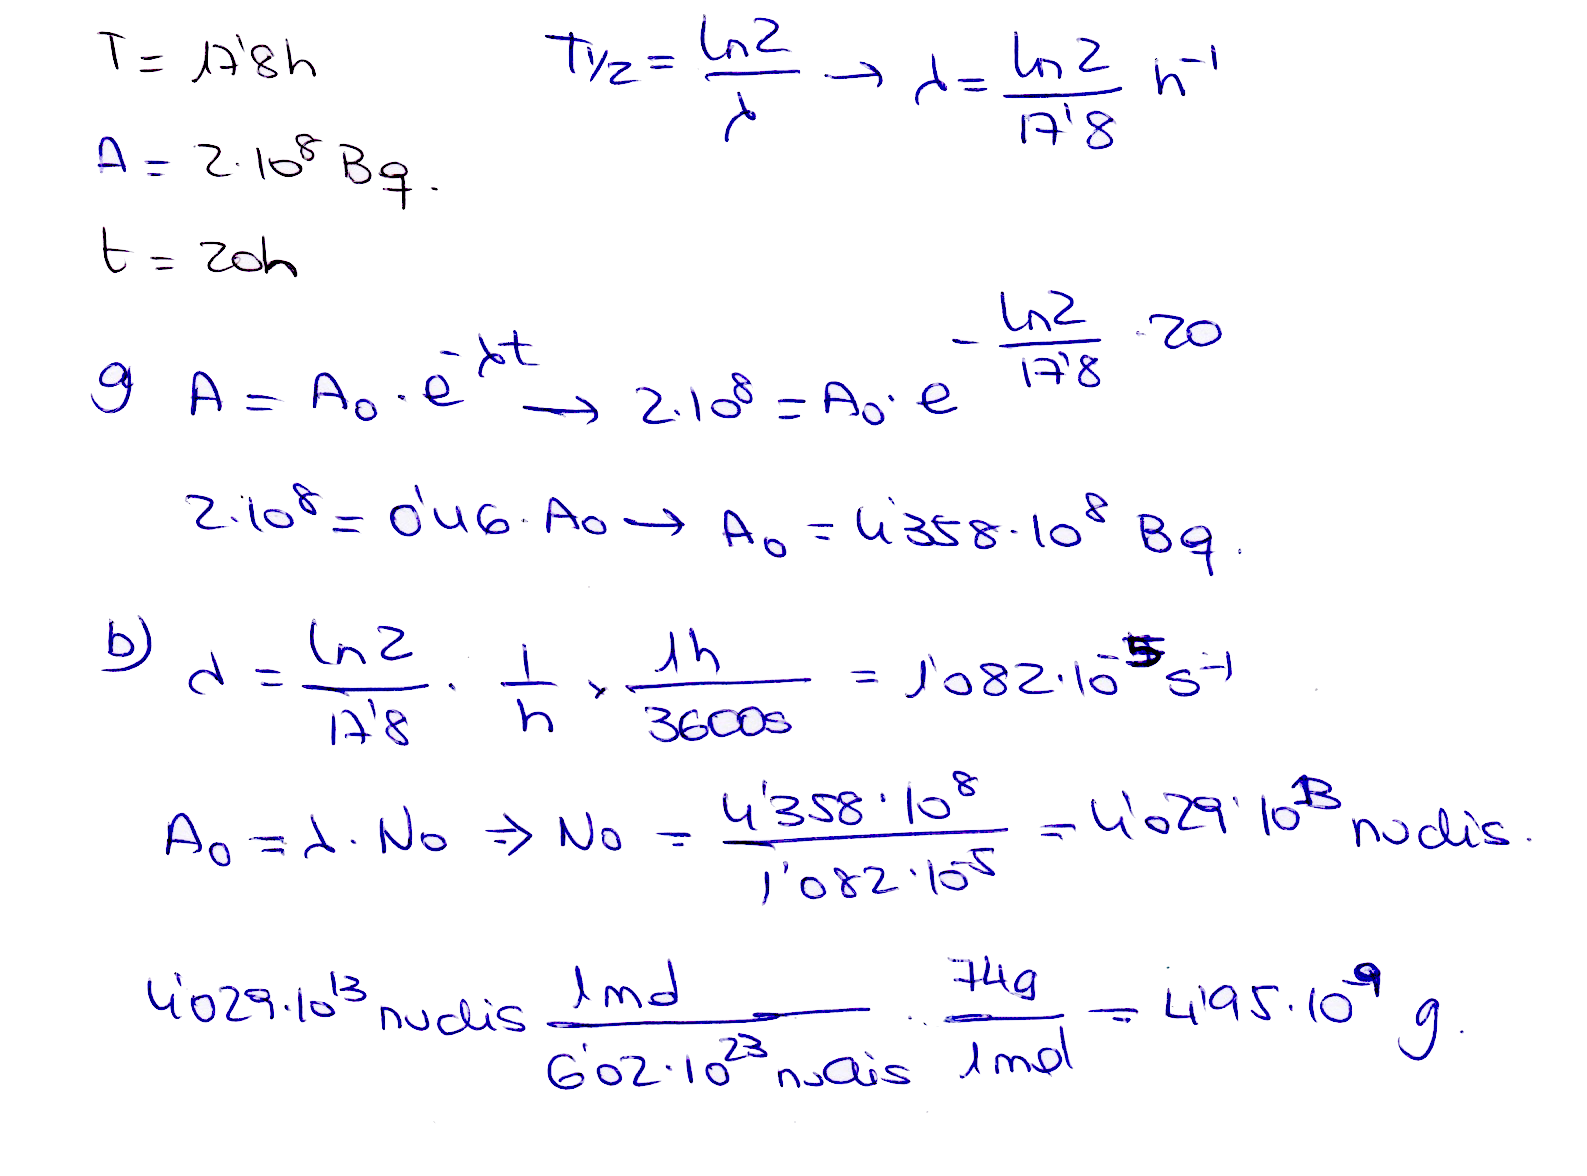 T = 17'8h    T1/2 = ln2/λ → λ = ln2/17'8 h⁻¹
A = 2·10⁸ Bq.
t = 20h
a) A = A₀·e^(-λt) → 2·10⁸ = A₀·e^(-ln2/17'8 · 20)
2·10⁸ = 0'46·A₀ → A₀ = 4'358·10⁸ Bq.
b) λ = ln2/17'8 · 1/h × 1h/3600s = 1'082·10⁻⁵ s⁻¹
A₀ = λ·N₀ ⇒ N₀ = 4'358·10⁸/1'082·10⁻⁵ = 4'029·10¹³ nuclis.
4'029·10¹³ nuclis 1mol/6'02·10²³ nuclis · 74g/1mol = 4'95·10⁻⁹ g.